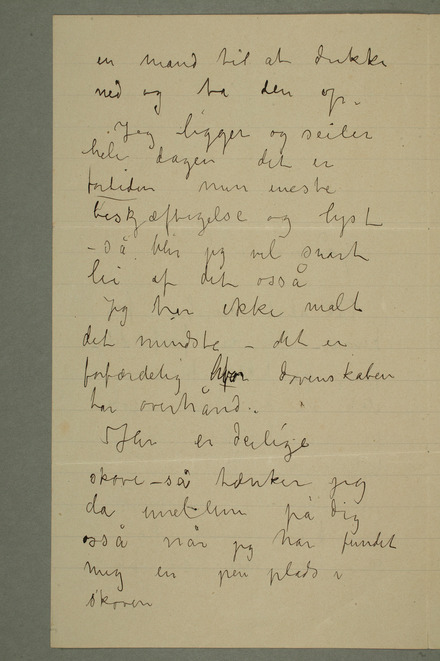 en mand til at dukke
ned og ta den op.
Jeg ligger og seiler
hele dagen det er
fortiden min eneste
beskjæftigelse og lyst
– så blir jeg vel snart
lei af det også
Jeg har ikke malt
det mindste – det er
forfærdelig hvor dovenskaben
har overhånd.
Her er deilige
skove – så tænker jeg
da imellem på dig
også når jeg har fundet
mig en pen plads i
skoven